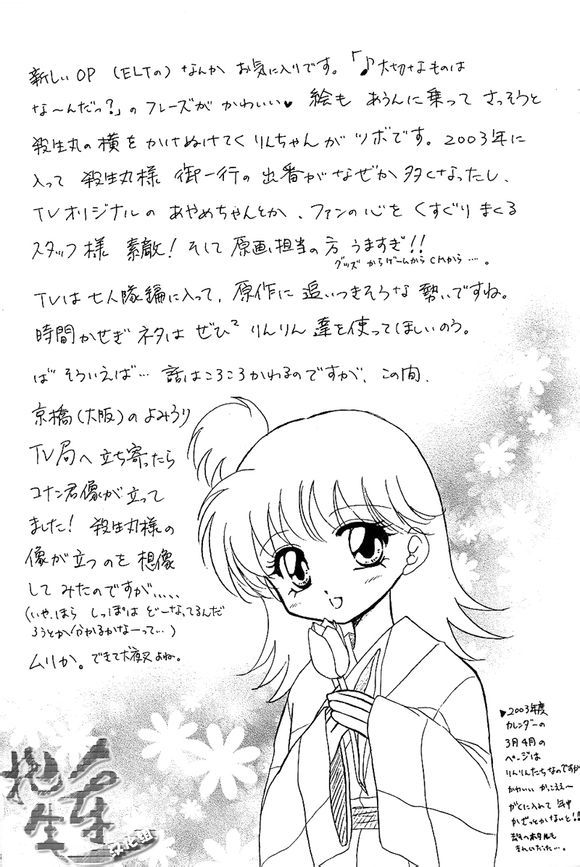 新しいOP (ELTの) なんか お気に入りです。「♪大切なものは
な〜んだっ?」の フレーズが かわいい♥ 絵も あうんに乗って さっそうと
殺生丸の横を かけぬけてく りんちゃんが ツボです。2003年に
入って 殺生丸様 御一行の 出番が なぜか 多くなったし、
TVオリジナルの あやめちゃんとか、ファンの心を くすぐり まくる
スタッフ様 素敵! そして 原画担当の方 うますぎ!!
グッズ からゲームから CMから…。
TVは七人隊編に入って、原作に 追いつきそうな 勢いですね。
時間かせぎネタは ぜひ² りんりん 達を使ってほしいのう。
ば そういえば… 話はころころかわるのですが、この間、
京橋(大阪)の よみうり
TV局へ立ち寄ったら
コナン君像が立って
ました! 殺生丸様の
像が立つのを 想像
して みたのですが.....
(いや、ほら しっぽは どーなってるんだ
ろうとか(わかるかなーって…)
ムリか。できて犬夜叉よね。
▶2003年度
カレンダーの
3月4月の
ページは
りんりんたちなのですが
かわいい かっこええ〜
がくに入れて 年中
かざっとかないと!!
きれいだった…。